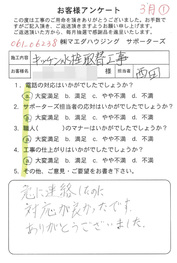 お客様アンケート
3月①
この度は工事のご用命を頂きありがとうございました。お手数で
すがご記入頂き、ご返送頂きますようお願い申し上げます。
ご返送頂いた方に、毎月抽選で感謝品を進呈いたします。
061-06238 ㈱マエダハウジング サポーターズ
施工内容 キッチン水栓取替工事
お名前 担当者 西田
1. 電話の対応はいかがでしたでしょうか？
a. 大変満足 b. 満足 c. やや不満 d. 不満
2. サポーターズ担当者の対応はいかがでしたでしょうか？
a. 大変満足 b. 満足 c. やや不満 d. 不満
3. 職人( )のマナーはいかがでしたでしょうか？
a. 大変満足 b. 満足 c. やや不満 d. 不満
4. 工事の仕上がりはいかがでしたでしょうか？
a. 大変満足 b. 満足 c. やや不満 d. 不満
5. その他、ご意見・ご要望をお聞かせください。
急に連絡したのに
対応が良かったです。
ありがとうございました。